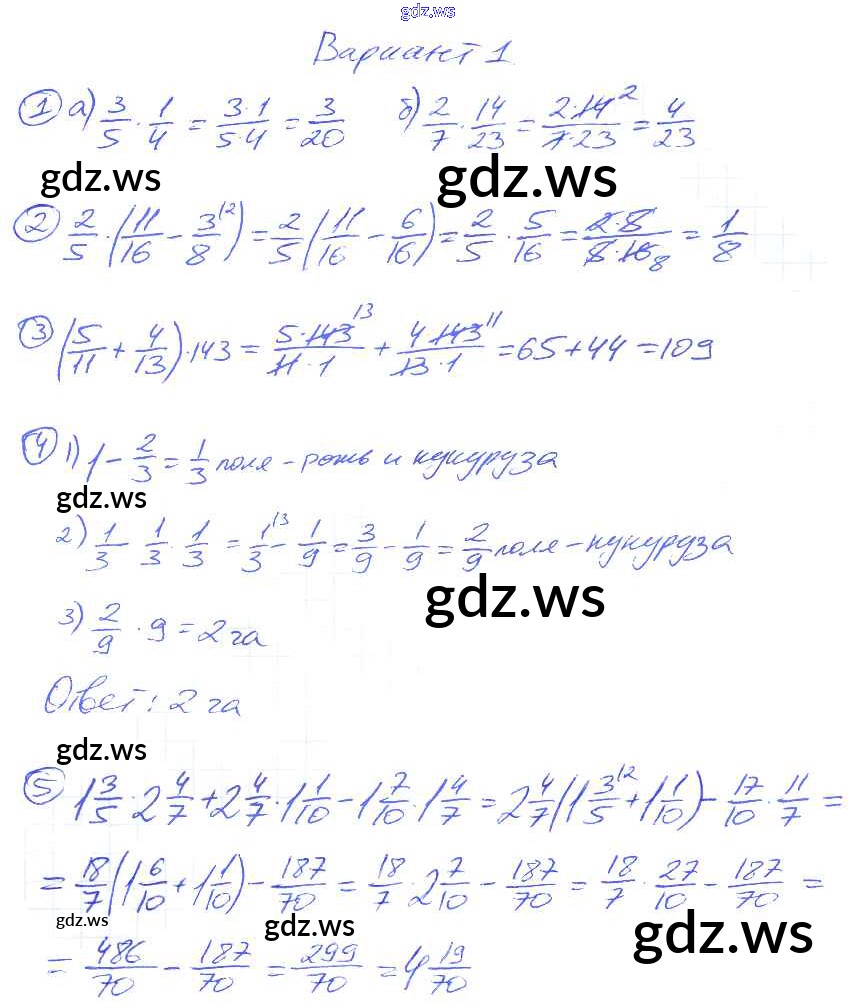 gdz.ws
Вариант 1
① а) 3/5 · 1/4 = 3·1/5·4 = 3/20 б) 2/7 · 14/23 = 2·14²/7·23 = 4/23
gdz.ws gdz.ws
② 2/5 · (11/16 − 3/8^(2)) = 2/5 (11/16 − 6/16) = 2/5 · 5/16 = 2·8/8·16₈ = 1/8
③ (5/11 + 4/13) · 143 = 5·143¹³/11·1 + 4·143¹¹/13·1 = 65+44 = 109
④ 1) 1 − 2/3 = 1/3 поля - рожь и кукуруза
gdz.ws
2) 1/3 − 1/3 · 1/3 = 1/3^(3) − 1/9 = 3/9 − 1/9 = 2/9 поля - кукуруза
gdz.ws
3) 2/9 · 9 = 2 га
Ответ: 2 га
gdz.ws
⑤ 1 3/5 · 2 4/7 + 2 4/7 · 1 1/10 − 1 7/10 · 1 4/7 = 2 4/7 (1 3/5^(2) + 1 1/10) − 17/10 · 11/7 =
= 18/7 (1 6/10 + 1 1/10) − 187/70 = 18/7 · 2 7/10 − 187/70 = 18/7 · 27/10 − 187/70 =
gdz.ws gdz.ws gdz.ws
= 486/70 − 187/70 = 299/70 = 4 19/70